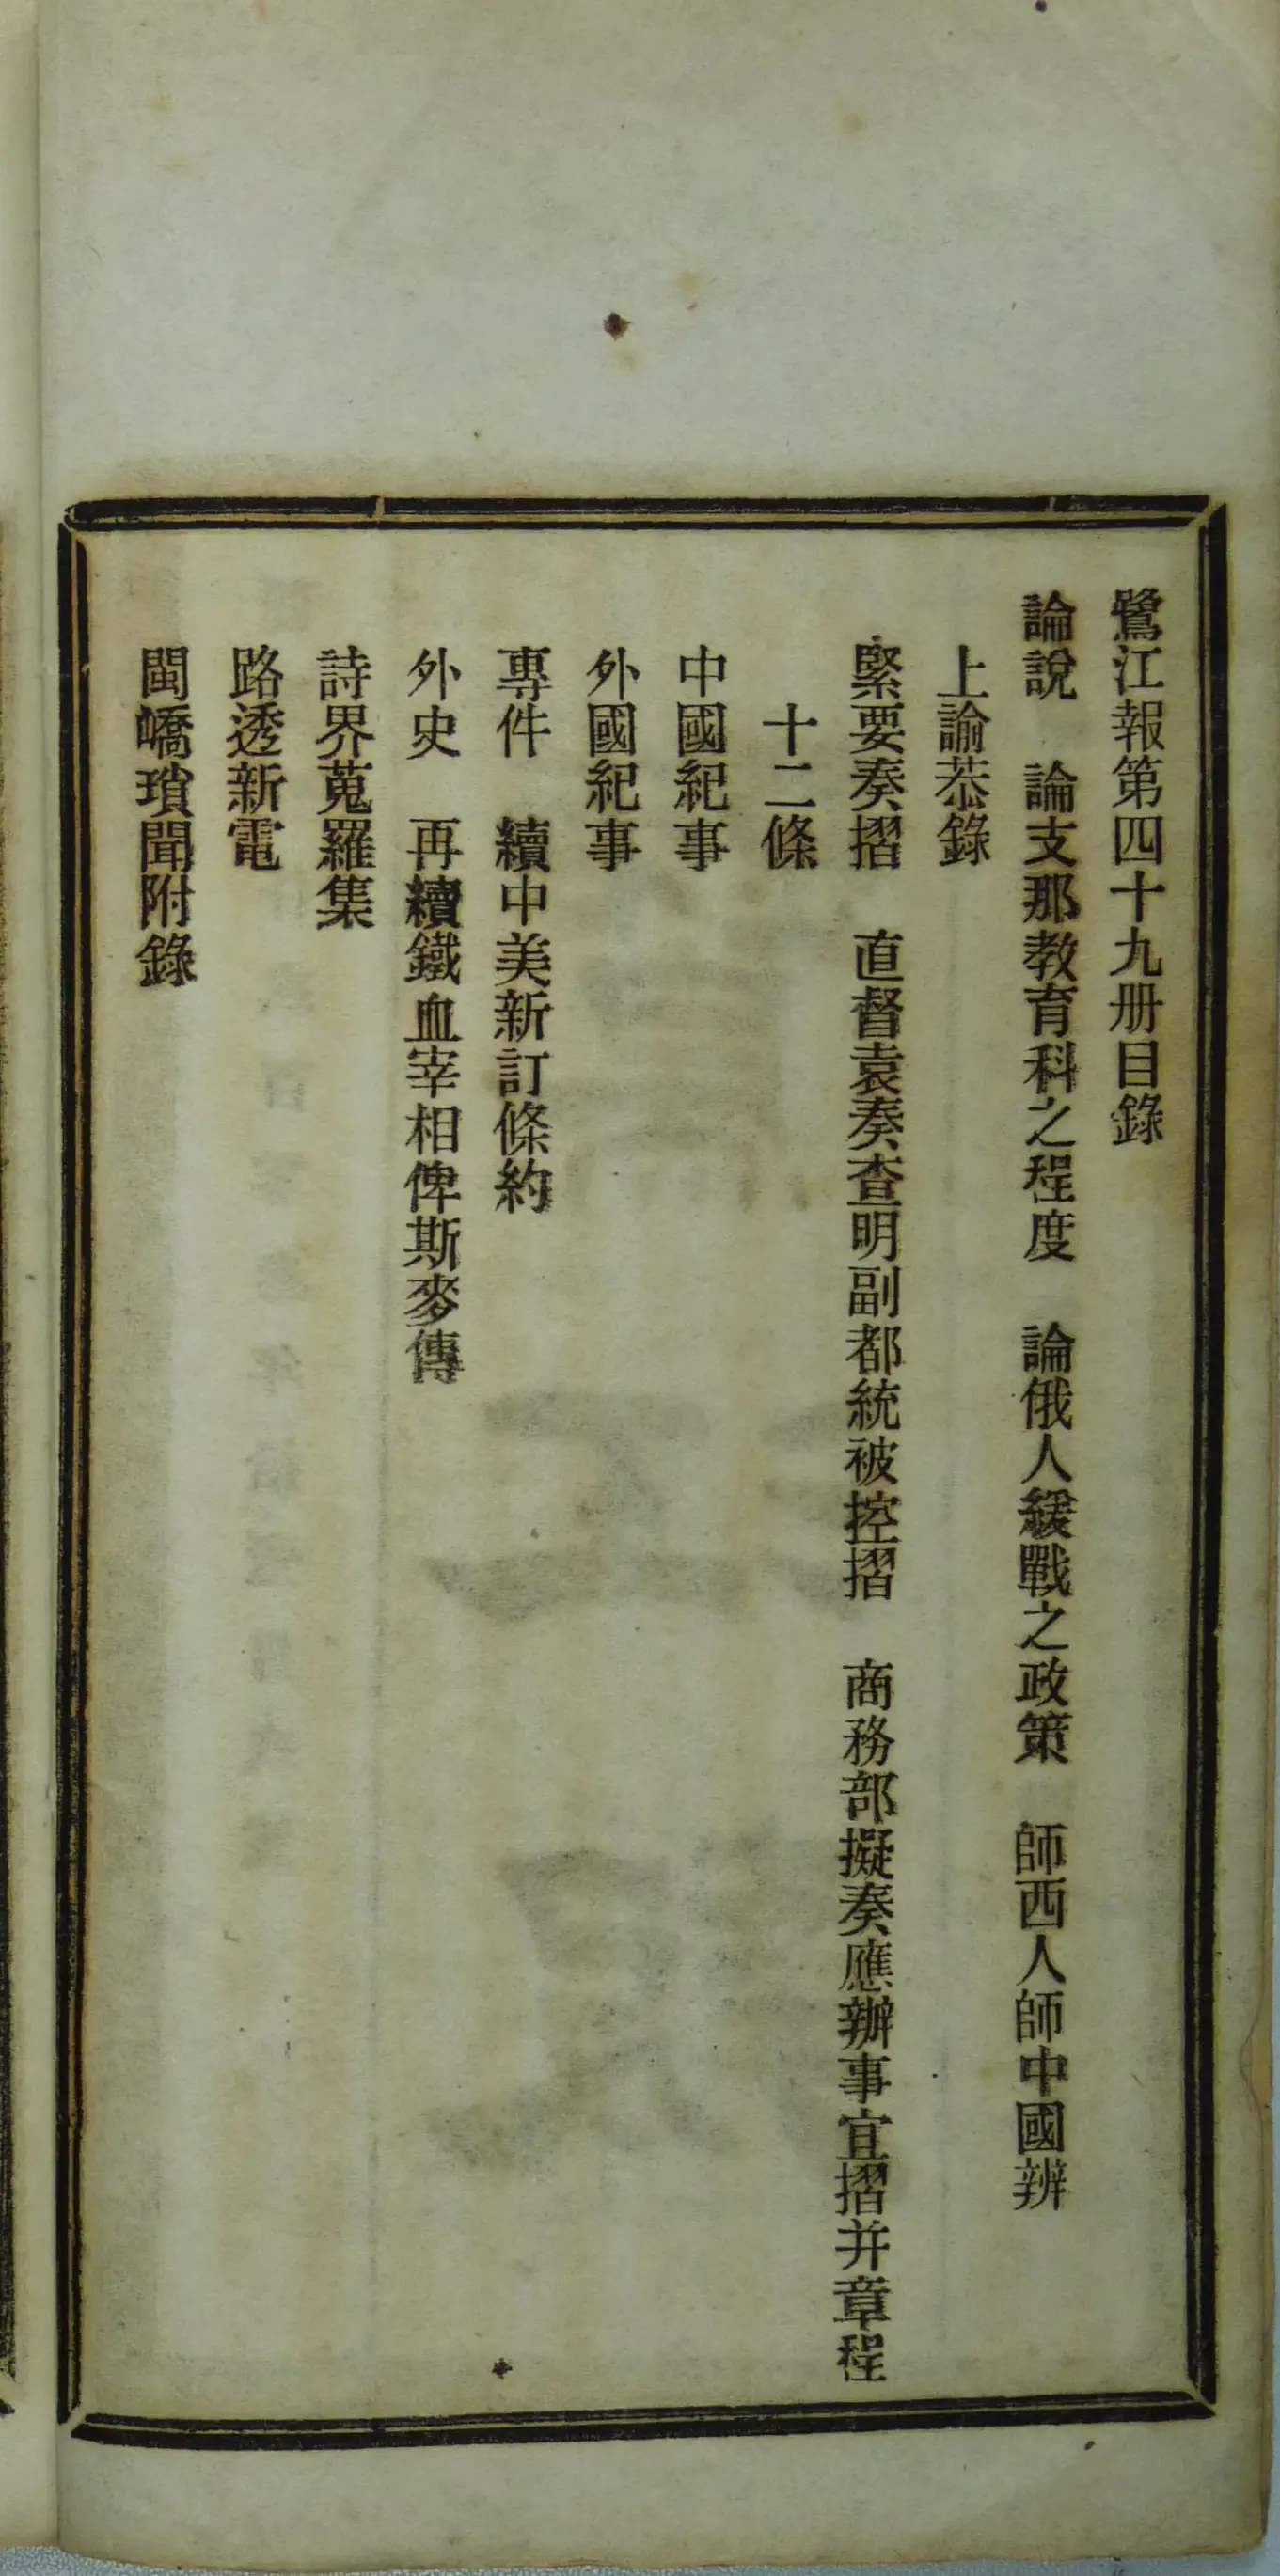 鷺江報第四十九册目錄
論說　論支那教育科之程度　論俄人緩戰之政策　師西人師中國辨
上諭恭錄
緊要奏摺　直督袁奏查明副都統被控摺　商務部擬奏應辦事宜摺并章程
十二條
中國紀事
外國紀事
專件　續中美新訂條約
外史　再續鐵血宰相俾斯麥傳
詩界蒐羅集
路透新電
閩嶠瑣聞附錄